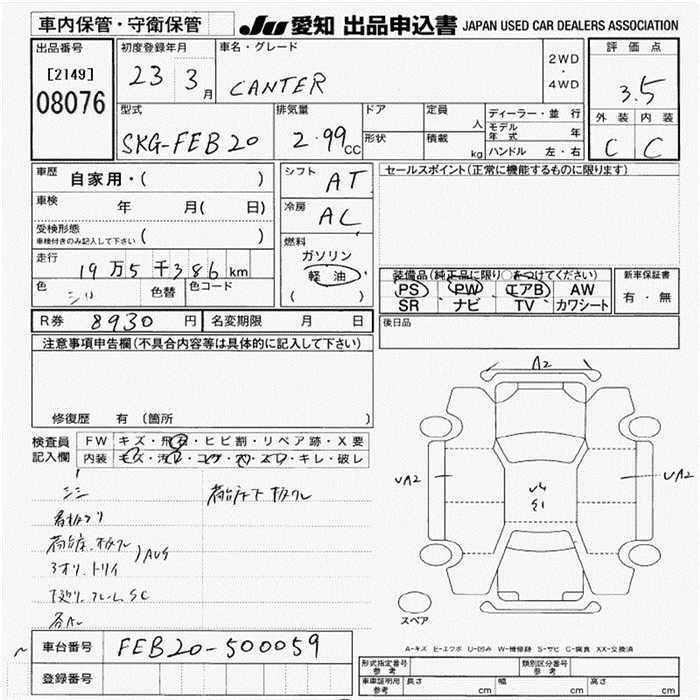 車内保管・守衛保管
JU 愛知 出品申込書 JAPAN USED CAR DEALERS ASSOCIATION
出品番号
[2149]
08076
初度登録年月
23 3月
車名・グレード
CANTER
2WD
・
4WD
評価点
3.5
外装 内装
C C
型式
SKG-FEB20
排気量
2.99cc
ドア
形状
定員
人
積載
kg
ディーラー・並行
モデル年式 年
ハンドル 左・右
車歴
自家用・( )
車検
年 月( 日)
受検形態
車検付きのみ記入して下さい ( )
走行
19万5千386km
色
シロ
色替
色コード
シフト
AT
冷房
AC
燃料
ガソリン
軽油
( )
セールスポイント(正常に機能するものに限ります)
装備品(純正品に限り○をつけてください)
PS PW エアB AW
SR ナビ TV カワシート
新車保証書
有・無
R券 8930円
名変期限 月 日
後日品
注意事項申告欄(不具合内容等は具体的に記入して下さい)
修復歴 有 (箇所 )
検査員
記入欄
FW キズ・飛石・ヒビ割・リペア跡・X要
内装 キズ・汚れ・コゲ・穴・スレ・キレ・破レ
A2
UA2
UA2
U4
S1
スペア
A-キズ E-エクボ U-凹み W-補修跡 S-サビ C-腐食 XX-交換済
車台番号 FEB20-500059
登録番号
形式指定番号
参考
類別区分番号
参考
車庫証明用
参考
長さ cm
幅 cm
高さ cm